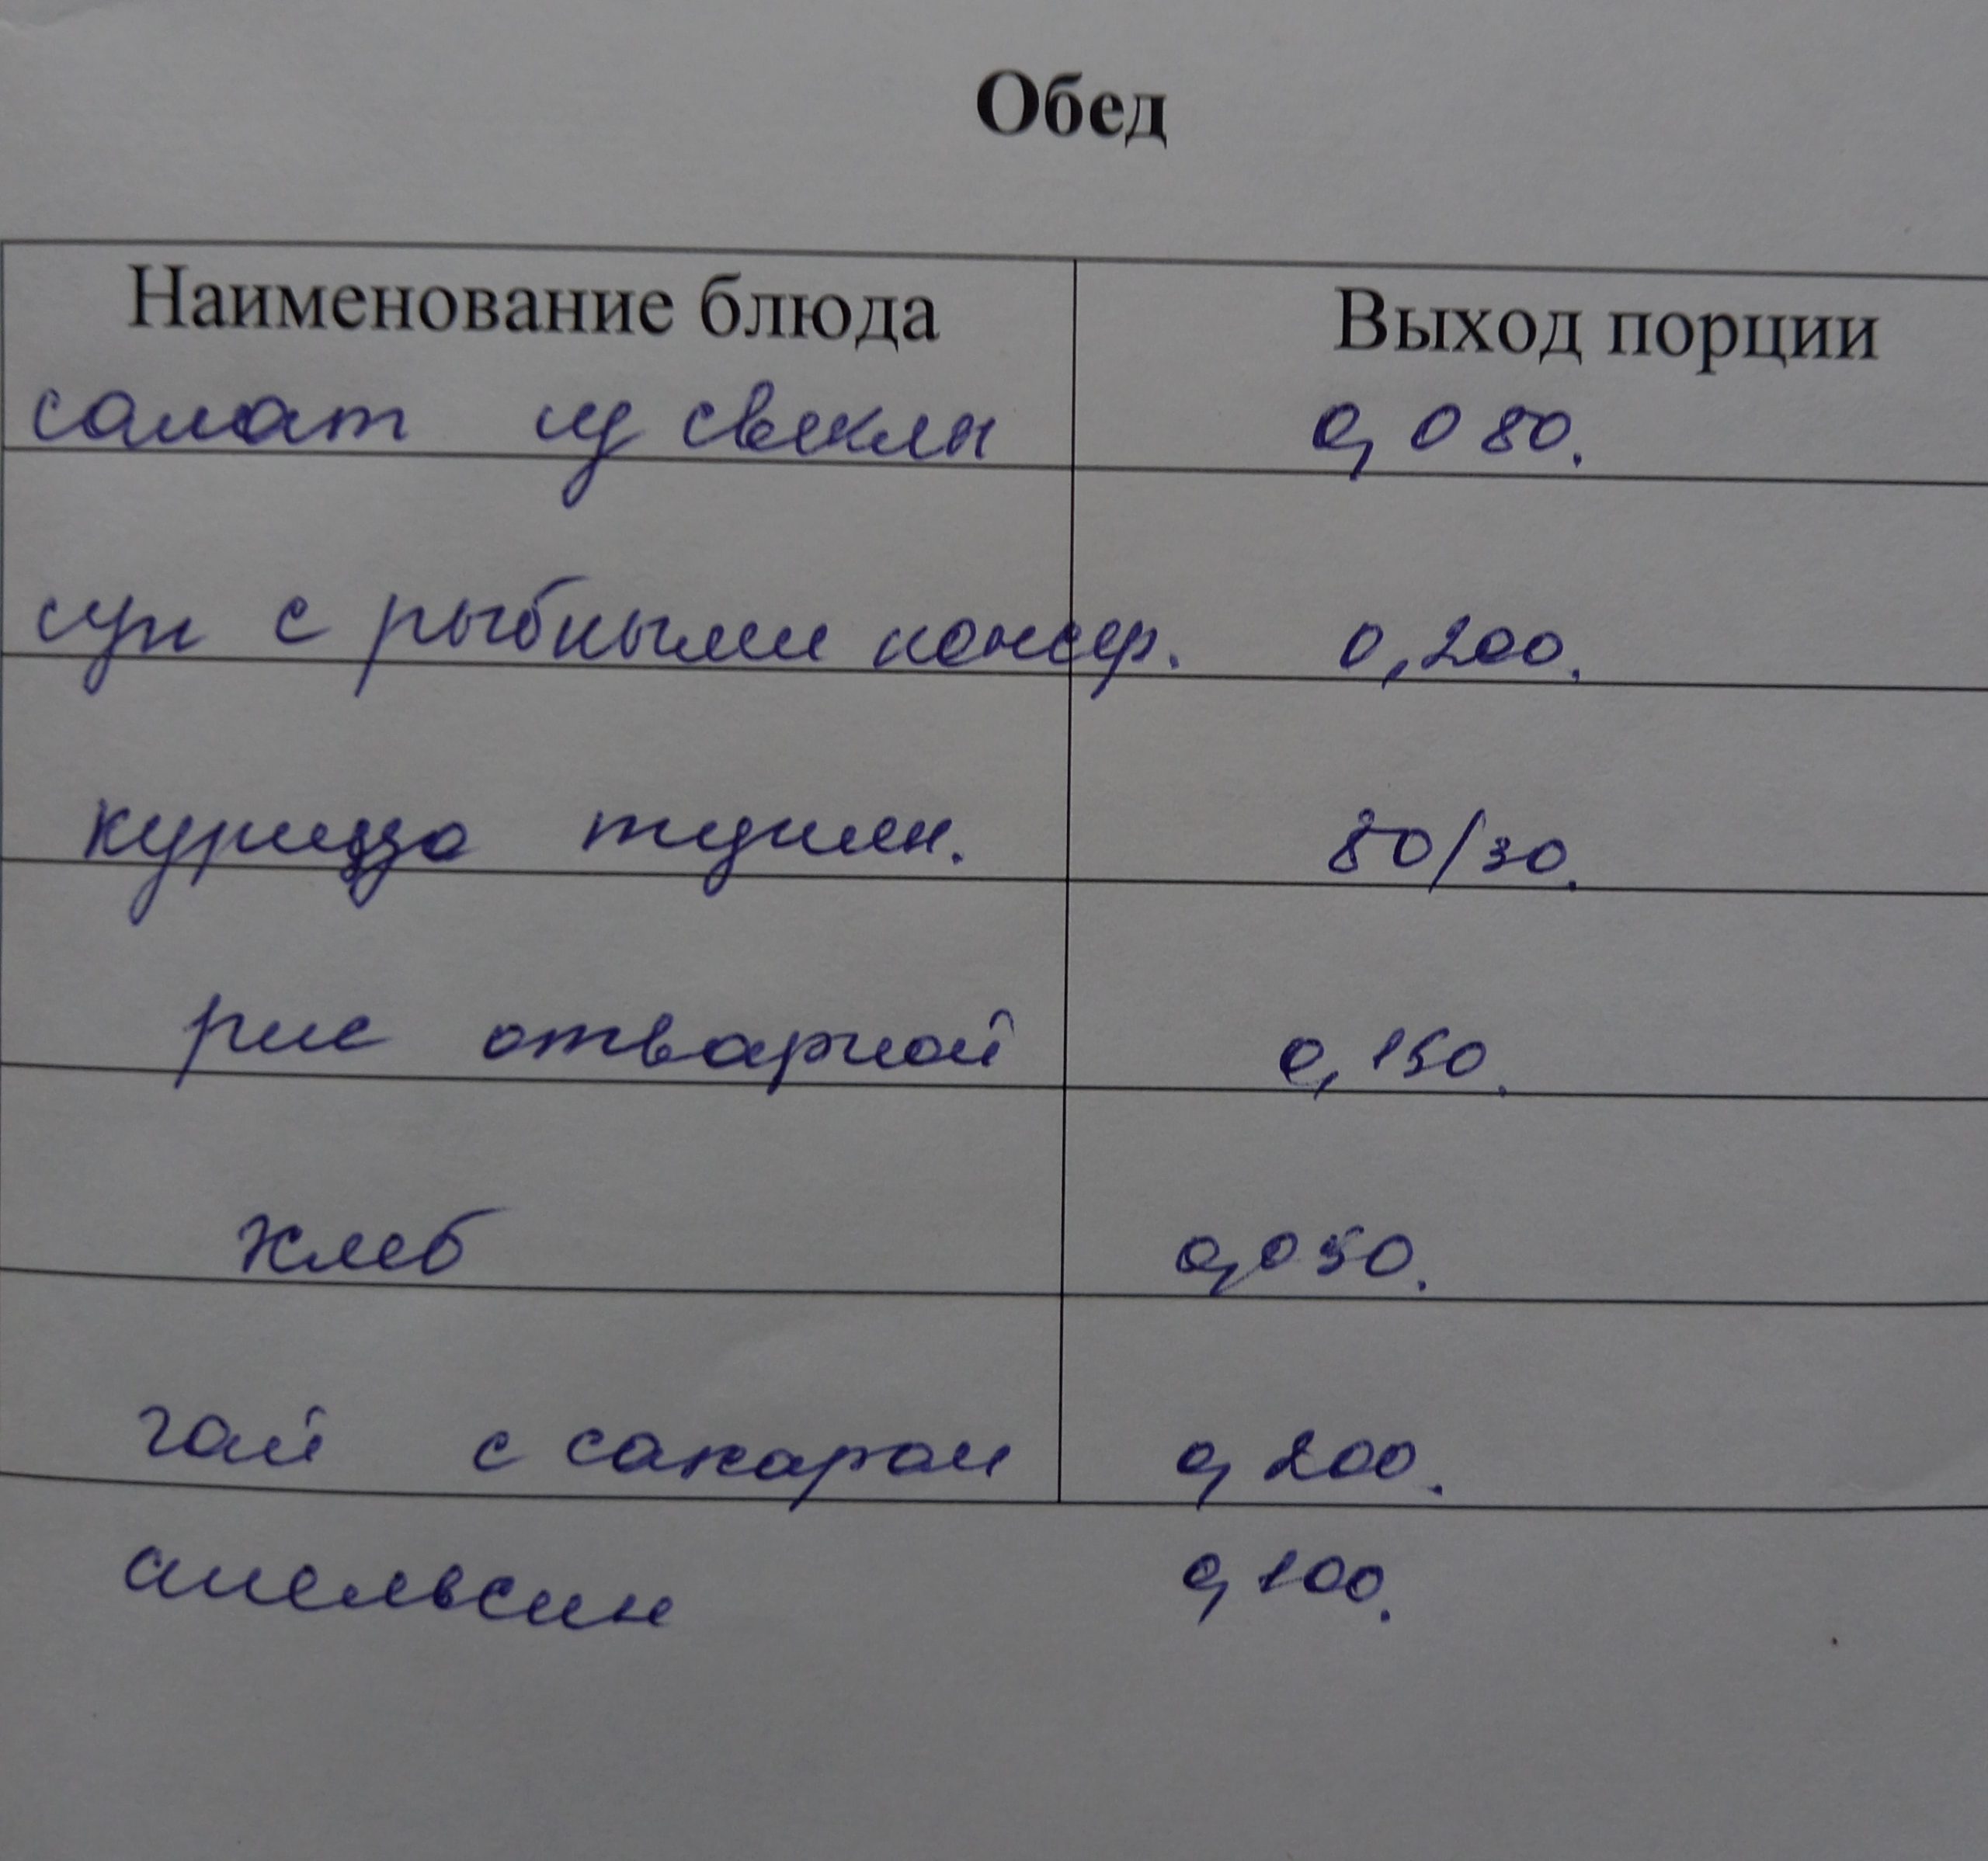 Обед
Наименование блюда Выход порции
салат из свеклы 0,080.
суп с рыбными консер. 0,200.
курица тушен. 80/30.
рис отварной 0,150.
хлеб 0,050.
чай с сахаром 0,200.
апельсин 0,100.